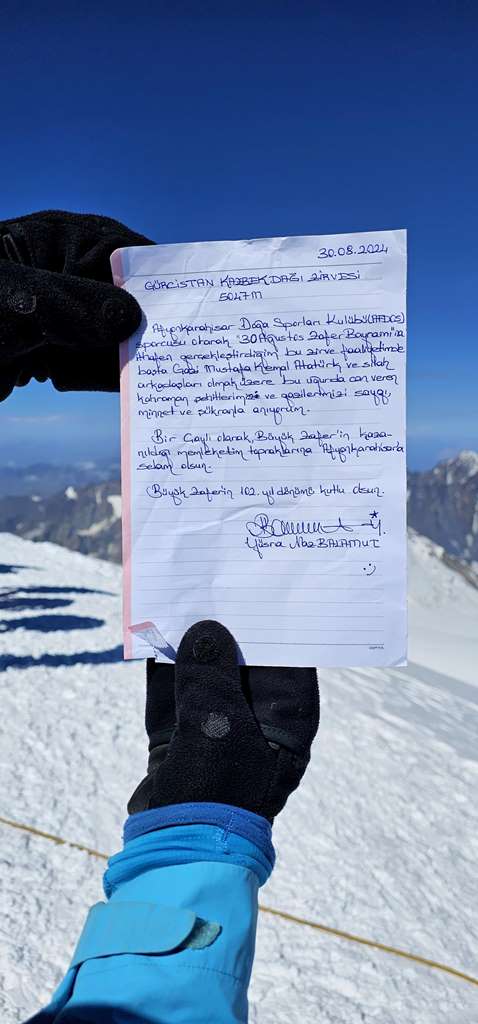 30.08.2024
GÜRCİSTAN KAZBEK DAĞI ZİRVESİ
5047M
Afyonkarahisar Doğa Sporları Kulübü(AFDOS)
sporcusu olarak "30 Ağustos Zafer Bayramı"na
ithafen gerçekleştirdiğim bu zirve faaliyetimde
başta Gazi Mustafa Kemal Atatürk ve silah
arkadaşları olmak üzere bu uğurda can veren
kahraman şehitlerimizi ve gazilerimizi saygı,
minnet ve şükranla anıyorum.
Bir Gaylı olarak, Büyük Zafer'in kaza-
nıldığı memleketim topraklarına Afyonkarahisar'a
selam olsun.
Büyük Zafer'in 102. yıl dönümü kutlu olsun.
Yüsra Naz BALAMUT
:)